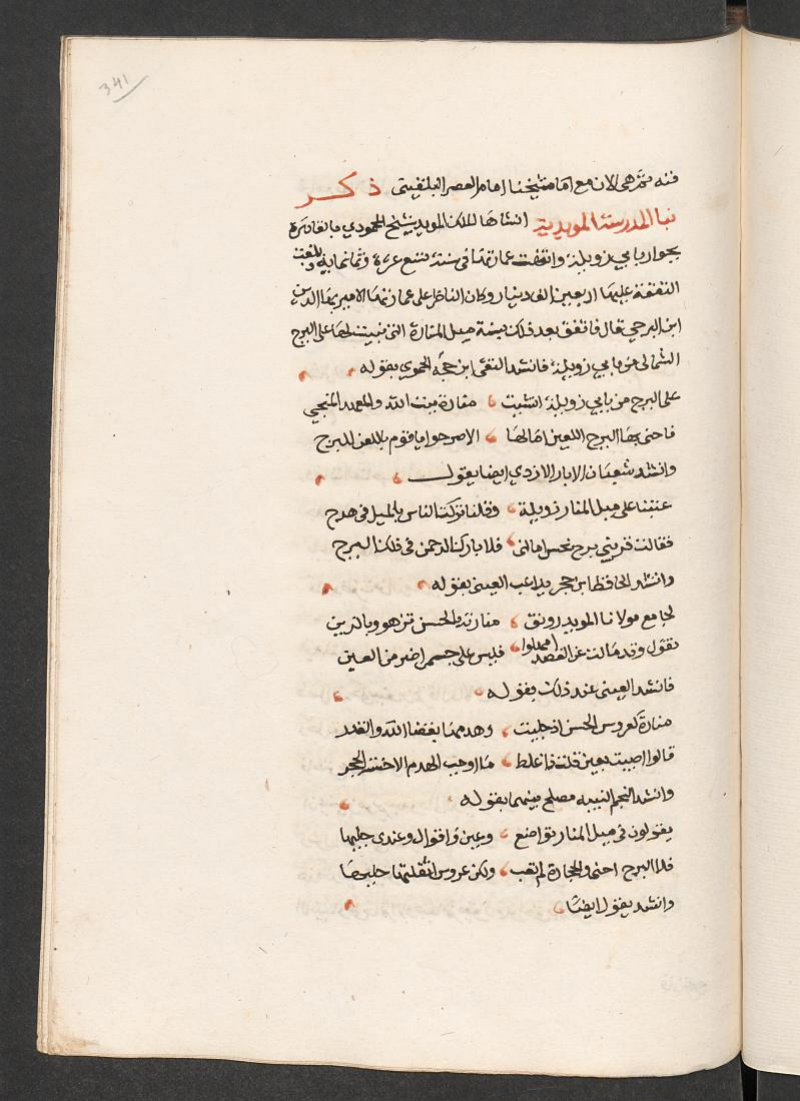 ٣٤١
فنه ثم هي الان مع امام شيخنا امام العصر البلقيني ذكر
بنا المدرسة المويدية انشاها الملك المويد شيخ المحمودي بالقاهرة
بجوار بابي زويلة وانتهت عمارتها في سنة تسع عشرة وثمانماية وبلغت
النفقة عليها اربعين الف دينار وكان الناظر على عمارتها الامير بها الدين
ابن البرجي قال فاتفق بعد ذلك بسنة ميل المنارة التي بنيت لها على البرج
الشمالي من بابي زويلة فانشد التقي ابن حجه الحموي بقوله
على البرج من بابي زويلة انشيت منارة بيت الله والمعبد المنجي
فاحنى بها البرج اللعين امالها الا صرحوا يا قوم باللعن للبرج
وانشد شعبان الاباري الازدي ايضا يقول
عتبنا على ميل المنار زويلة وقلنا تركت الناس بالميل في هرج
فقالت قريني برج نحس امالني فلا بارك الرحمن في ذلك البرج
وانشد الحافظ ابن حجر يداعب العيني بقوله
لجامع مولانا المويد رونق منارته بالحسن تزهو وبالزين
تقول وقد مالت عن القصد امهلوا فليس على جسمي اضر من العين
فانشد العيني عند ذلك بقوله
منارة كعروس الحسن اذ جليت وهدمها بقضا الله والقدر
قالوا اصيبت بعين قلت ذا غلط ما اوجب الهدم الا خسة الحجر
وانشد النجم النبيه مصلح بينهما بقوله
يقولون في ميل المنار تواضع وعين واقوال وعندي جليها
فلا البرج احنى والحجارة لم تعب ولكن عروس اثقلتها حليها
وانشد يقول ايضا